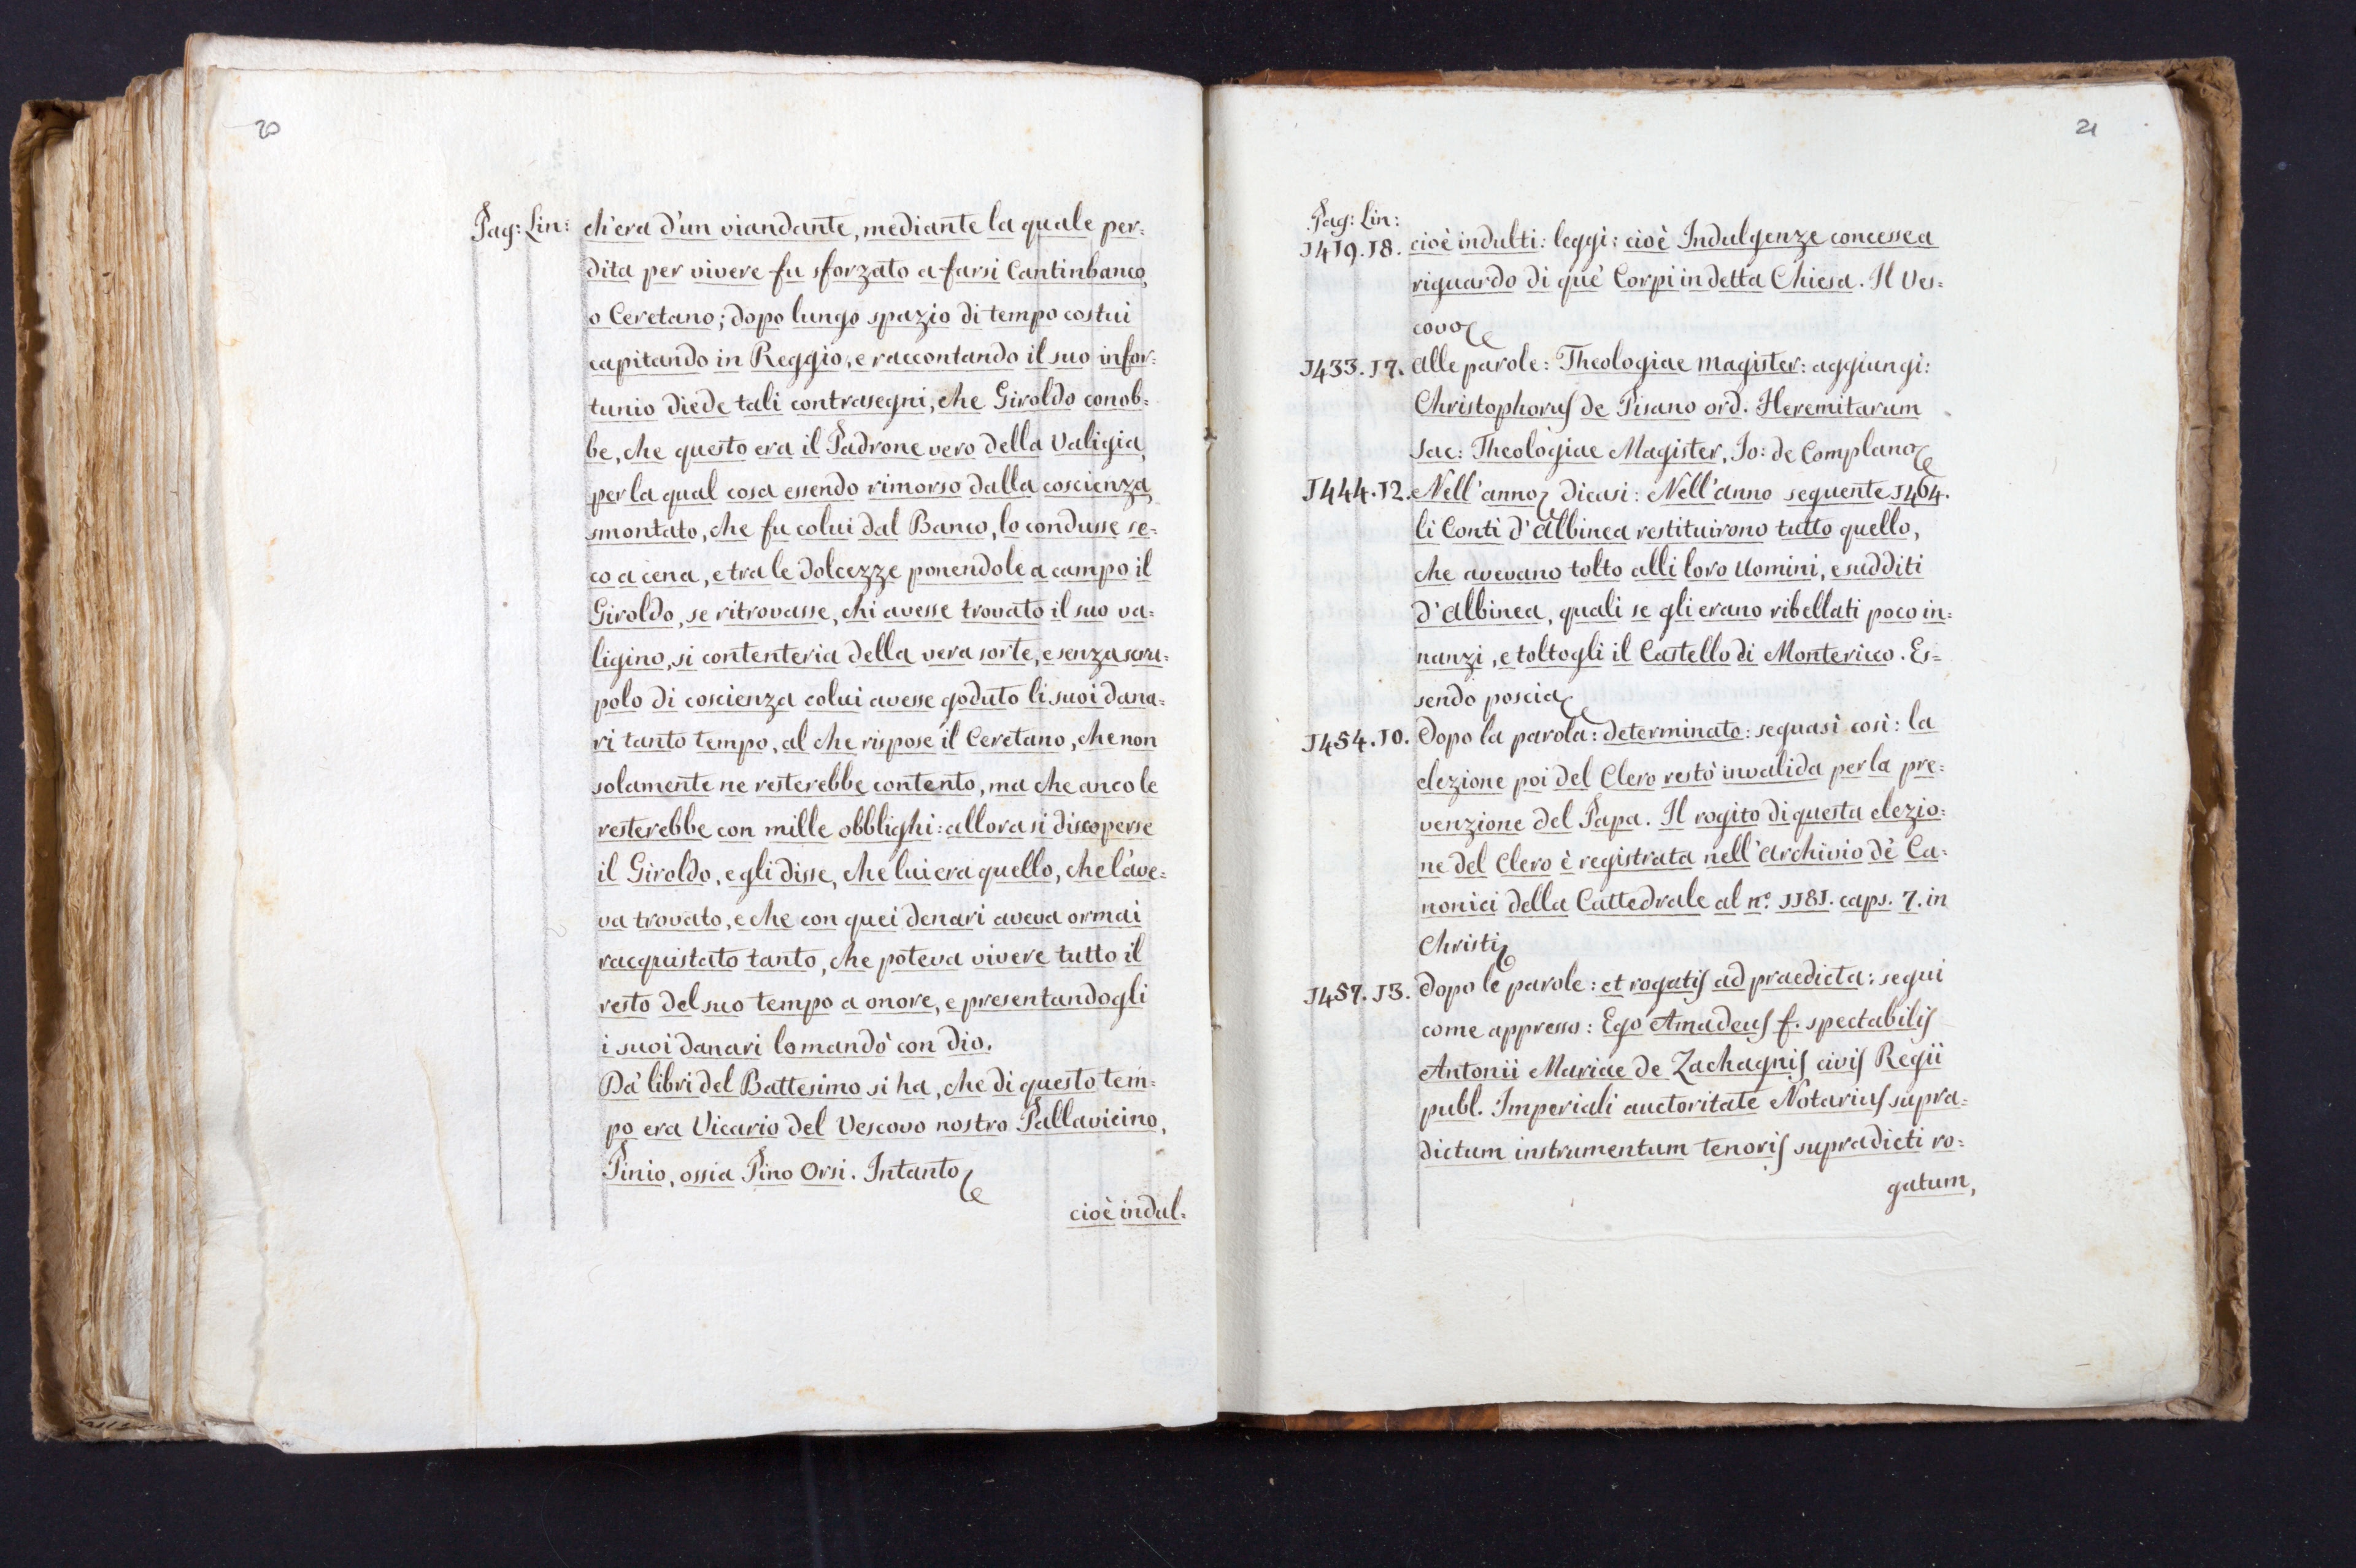 20
Pag: Lin: ch'era d'un viandante, mediante la quale per=
dita per vivere fu sforzato a farsi Cantinbanco,
o Ceretano; dopo lungo spazio di tempo costui
capitando in Reggio, e raccontando il suo infor=
tunio diede tali contrasegni, che Giroldo conob=
be, che questo era il Padrone vero della Valigia,
per la qual cosa essendo rimorso dalla coscienza,
smontato, che fu colui dal Banco, lo condusse se=
co a cena, e tra le dolcezze ponendole a campo il
Giroldo, se ritrovasse, chi avesse trovato il suo va=
ligino, si contenteria della vera sorte, e senza scru=
polo di coscienza colui avesse goduto li suoi dana=
ri tanto tempo, al che rispose il Ceretano, che non
solamente ne resterebbe contento, ma che anco le
resterebbe con mille obblighi: allora si discoperse
il Giroldo, e gli disse, che lui era quello, che l'ave=
va trovato, e che con quei denari aveva ormai
racquistato tanto, che poteva vivere tutto il
resto del suo tempo a onore, e presentandogli
i suoi danari lo mandò con dio.
Da' libri del Battesimo si ha, che di questo tem=
po era Vicario del Vescovo nostro Pallavicino,
Pinio, ossia Pino Orsi. Intanto
cioè indul=
21
Pag: Lin:
1419. 18. cioè indulti: leggi: cioè Indulgenze concesse a
riguardo di que' Corpi in detta Chiesa. Il Ves=
covo
1433. 17. alle parole: Theologiae magister: aggiungi:
Christophorus de Pisano ord. Heremitarum
Sac: Theologiae Magister, Jo: de Complano
1444. 12. Nell'anno dicasi: Nell'anno seguente 1464.
li Conti d'Albinea restituirono tutto quello,
che avevano tolto alli loro Uomini, e sudditi
d'Albinea, quali se gli erano ribellati poco in=
nanzi, e toltogli il Castello di Montericco. Es=
sendo poscia
1454. 10. Dopo la parola: determinato: seguasi così: la
elezione poi del Clero restò invalida per la pre=
venzione del Papa. Il rogito di questa elezio=
ne del Clero è registrata nell'Archivio de' Ca=
nonici della Cattedrale al n.º 1181. caps. 7. in
Christi
1457. 13. Dopo le parole: et rogatis ad praedicta: segui
come appresso: Ego Amadeus f. spectabilis
Antonii Mariae de Zachagnis civis Regii
publ. Imperiali auctoritate Notarius supra=
dictum instrumentum tenoris supradicti ro=
gatum,